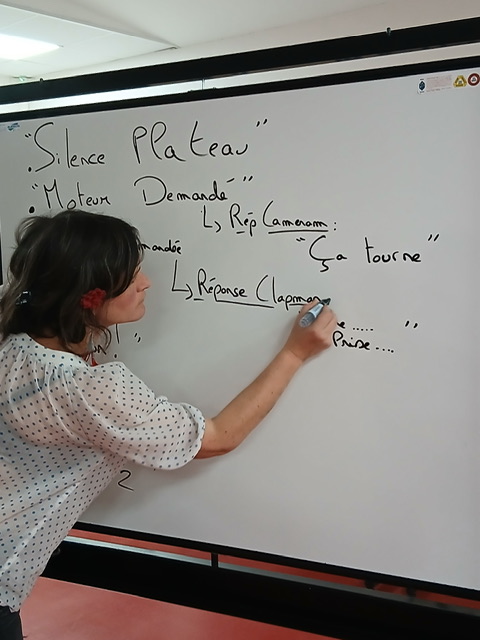 "Silence Plateau"
"Moteur Demandé"
↳ Rép Cameram :
"Ça tourne"
mandée
↳ Réponse Clapman
e ..... "
Prise ....
! "
2